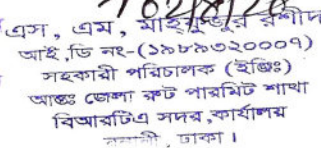 এস, এম, মাহফুজুর রশীদ
আই,ডি নং-(১৯৮৯৩২০০০৭)
সহকারী পরিচালক (ইঞ্জিঃ)
আন্তঃ জেলা রুট পারমিট শাখা
বিআরটিএ সদর,কার্যালয়
বনানী, ঢাকা।